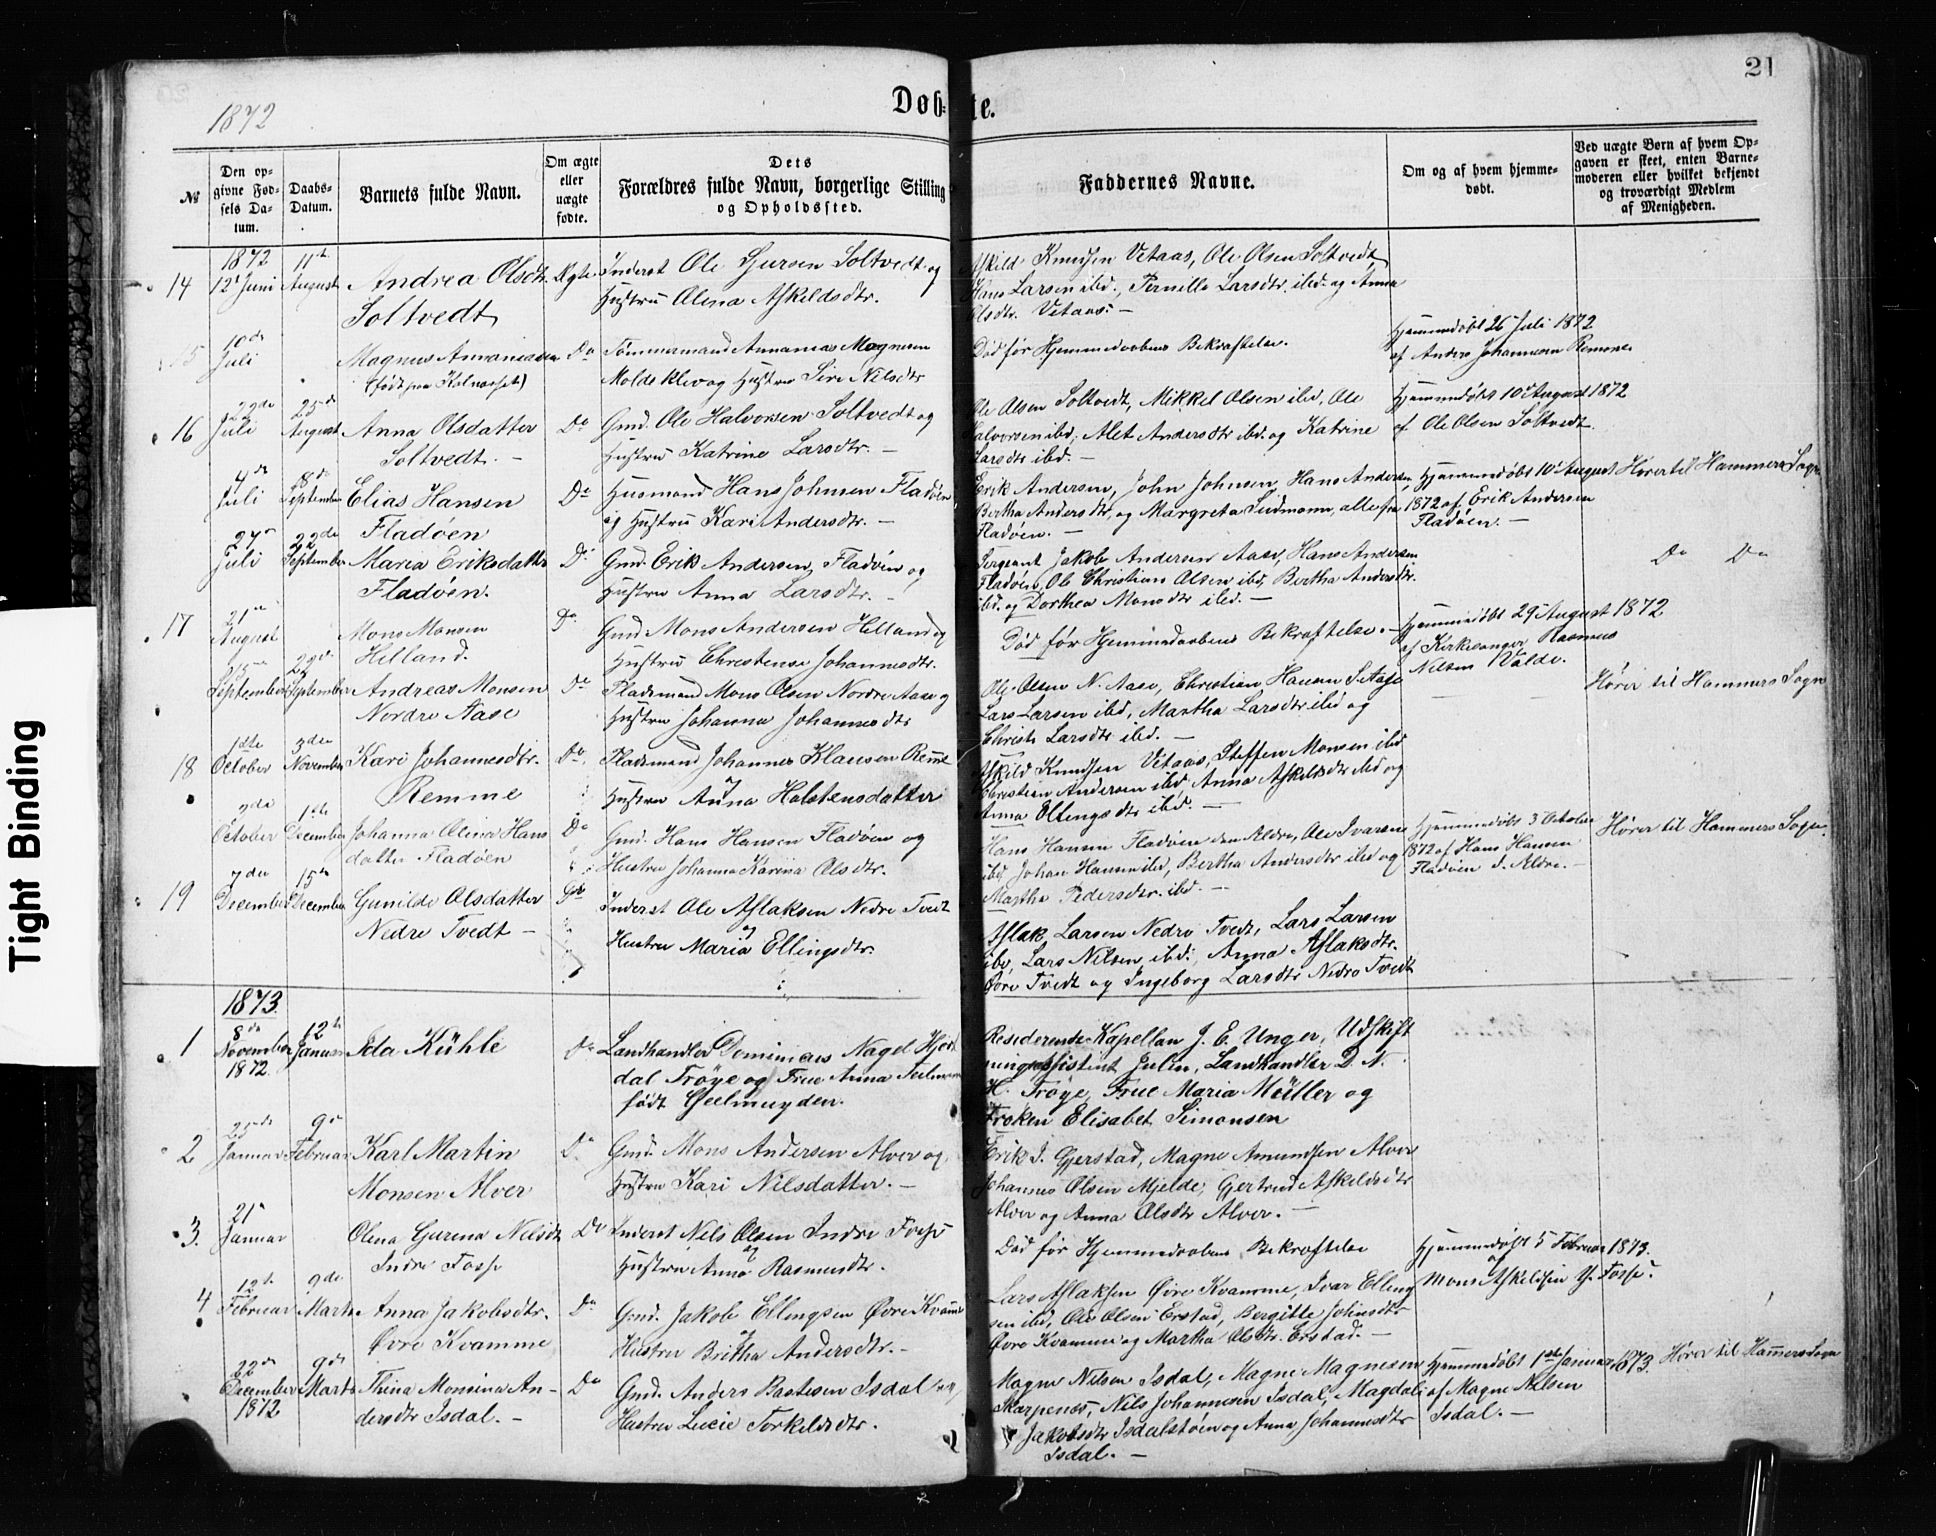 21
1872
Døbte.
№
Den opgivne Fødsels Datum.
Daabs-Datum.
Barnets fulde Navn.
Om ægte eller uægte fødte.
Dets Forældres fulde Navn, borgerlige Stilling og Opholdssted.
Faddernes Navne.
Om og af hvem hjemmedøbt.
Ved uægte Børn af hvem Opgaven er skeet, enten Barnemoderen eller hvilket bekjendt og troværdigt Medlem af Menigheden.
1872
14 12te Juni 11te August Andrea Olsdtr. Soltvedt Ægte
Inderst Ole Gjursen Soltvedt og
Hustru Olena Askildsdtr.
Askild Knudsen Vetaas, Ole Olsen Soltvedt,
Hans Larsen ibd., Pernille Larsdtr. ibd. og Anna
Olsdtr. Vetaas. —
15 10de Juli Magnus Annaniassen (født paa Kolnaset) Do
Tømmermand Annanias Magnesen
Moldeklev og Hustru Siri Nilsdtr
Død før Hjemmedaabens Bekræftelse.
Hjemmedøbt 26 Juli 1872
af Anders Johannesen Remme
16 22de Juli 25de August Anna Olsdatter Soltvedt. — Do
Gmd. Ole Halvorsen Soltvedt og
Hustru Katrine Larsdtr. —
Ole Olsen Soltvedt, Mikkel Olsen ibd, Ole
Halvorsen ibd, Alet Andersdtr ibd. og Katrine
Larsdtr ibd. —
Hjemmedøbt 10 August 1872
af Ole Olsen Soltvedt.
4de Juli 8de September Elias Hansen Fladøen Do
Husmand Hans Johnsen Fladøen
og Hustru Kari Andersdtr. —
Erik Andersen, John Johnsen, Hans Andersen,
Bertha Andersdtr, og Margreta Sudmann, alle fra
Fladøen. —
Hjemmedøbt 10 August
1872 af Erik Andersen
Fladøen. —
Hører til Hammers Sogn
27de Juli 22de September Maria Eriksdatter Fladøen. Do
Gmd. Erik Andersen, Fladøen og
Hustru Anna Larsdtr. —
Sergeant Jakob Andersen Aase, Hans Andersen
Fladøen, Ole Christian Olsen ibd, Bertha Andersdtr.
ibd. og Dorthea Monsdtr ibd. —
Do Do
17 21de August Mons Monsen Helland. Do
Gmd. Mons Andersen Helland og
Hustru Christense Johannesdtr.
Død før Hjemmedaabens Bekræftelse. —
Hjemmedøbt 29 August 1872
af Kirkesanger Rasmus
Nilsen Valde.
September 22de September Andreas Monsen Nordre Aase Do
Pladsmand Mons Olsen Nordre Aase og
Hustru Johanna Johannesdtr
Ole Olsen N. Aase, Christian Hansen S. Aase
Lars Larsen ibd, Martha Larsdtr ibd og
Christi Larsdtr ibd. —
Hører til Hammers Sogn
18 1ste October 3die November Kari Johannesdtr. Remme Do
Pladsmand Johannes Klausen Remme
og Hustru Anna Halstensdatter
Askild Knudsen Vetaas, Steffen Monsen ibd
Christian Andersen ibd, Anna Askildsdtr ibd og
Anna Ellingsdtr ibd. —
October 1ste December Johanna Olina Hansdatter Fladøen Do
Gmd. Hans Hansen Fladøen og
Hustru Johanna Karina Olsdtr.
Hans Hansen Fladøen den Ældre, Ole Ivarsen
ibd, Johan Hansen ibd, Bertha Andersdtr ibd og
Martha Pedersdtr. ibd. —
Hjemmedøbt 3 October
1872 af Hans Hansen
Fladøen d. Ældre. —
Hører til Hammers Sogn.
19 7de December 15de December Gunilde Olsdatter Nedre Tvedt — Do
Inderst Ole Aslaksen Nedre Tvedt
og Hustru Maria Ellingsdtr.
Aslak Larsen Nedre Tvedt, Lars Larsen
ibd, Lars Nilsen ibd, Anna Aslaksdtr.
Øvre Tvedt og Ingeborg Larsdtr Nedre Tvedt
1873.
1 8de November 1872. 12te Januar Ida Kühle Do
Landhandler Dominicus Nagel Hjor
dal Trøye og Frue Anna
født Geelmuyden.
Residerende Kapellan J. E. Unger, Udskift
ningsassistent Julin, Landhandler D. N.
H. Trøye, Frue Maria Müller og
Frøken Elisabet Simonsen
2 25de Januar 9de Februar Karl Martin Monsen Alver Do
Gmd. Mons Andersen Alver og
Hustru Kari Nilsdatter. —
Erik J. Gjerstad, Magne Amundsen Alver
Johannes Olsen Mjelde, Gjertrud Askildsdtr
Alver og Anna Olsdtr Alver. —
3. 21de Januar Olena Gurina Nilsdtr Indre Fosse Do
Inderst Nils Olsen Indre Fosse
og Hustru Anna Rasmusdtr.
Død før Hjemmedaabens Bekræftelse
Hjemmedøbt 5 Februar 1873.
af Mons Askildsen Y. Fosse.
4 12te Februar 9de Marts Anna Jakobsdtr. Øvre Kvamme Do
Gmd. Jakob Ellingsen Øvre Kvamme
og Hustru Britha Andersdtr. —
Lars Aslaksen Øvre Kvamme, Ivar Elling
sen ibd, Ole Olsen Erstad, Bergitte Johnsdtr
Øvre Kvamme og Martha Olsdtr. Erstad. —
22de December 1872 9de Marts Thina Monsina Andersdtr Isdal. — Do
Gmd. Anders Bastesen Isdal og
Hustru Lucie Torkildsdtr.
Magne Nilsen Isdal, Magne Magnesen
Skarpenes, Nils Johannesen Isdal, Magdali
Jakobsdtr Isdalstøen og Anna Johannesdtr
Isdal. —
Hjemmedøbt 1ste Januar 1873.
af Magne Nilsen
Isdal. —
Hører til Hammers Sogn
Tight Binding